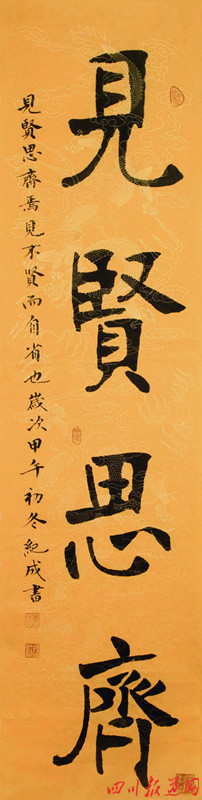 見賢思齊
見賢思齊焉見不賢而自省也歲次甲午初冬紀成書
四川报道网